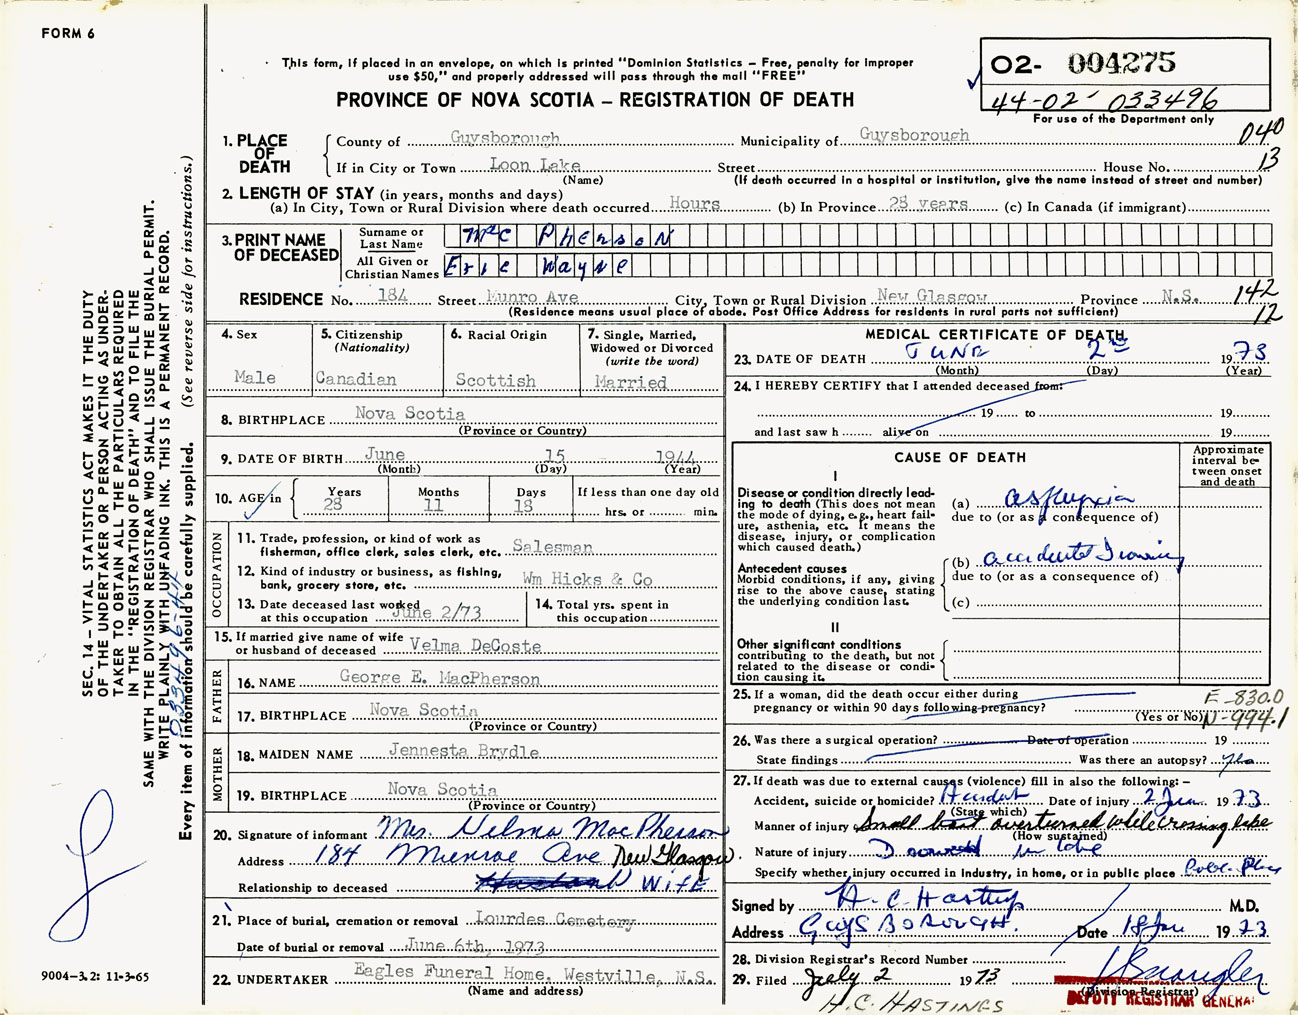 FORM 6
This form, if placed in an envelope, on which is printed "Dominion Statistics – Free, penalty for improper
use $50," and properly addressed will pass through the mail "FREE"
PROVINCE OF NOVA SCOTIA – REGISTRATION OF DEATH
02- 004275
44-02- 033496
For use of the Department only
1. PLACE OF DEATH
County of Guysborough Municipality of Guysborough 040
If in City or Town Loon Lake Street House No. 13
(Name) (If death occurred in a hospital or institution, give the name instead of street and number)
2. LENGTH OF STAY (in years, months and days)
(a) In City, Town or Rural Division where death occurred Hours (b) In Province 28 years (c) In Canada (if immigrant)
3. PRINT NAME OF DECEASED
Surname or Last Name McPherson
All Given or Christian Names Eric Wayne
RESIDENCE No. 184 Street Munro Ave City, Town or Rural Division New Glasgow Province N.S. 142
(Residence means usual place of abode. Post Office Address for residents in rural parts not sufficient) 12
4. Sex
Male
5. Citizenship
(Nationality)
Canadian
6. Racial Origin
Scottish
7. Single, Married,
Widowed or Divorced
(write the word)
Married
8. BIRTHPLACE Nova Scotia
(Province or Country)
9. DATE OF BIRTH June 15 1944
(Month) (Day) (Year)
10. AGE in
Years 28
Months 11
Days 18
If less than one day old
hrs. or min.
OCCUPATION
11. Trade, profession, or kind of work as
fisherman, office clerk, sales clerk, etc. Salesman
12. Kind of industry or business, as fishing,
bank, grocery store, etc. Wm Hicks & Co
13. Date deceased last worked
at this occupation June 2/73
14. Total yrs. spent in
this occupation
15. If married give name of wife
or husband of deceased Velma DeCoste
FATHER
16. NAME George E. MacPherson
17. BIRTHPLACE Nova Scotia
(Province or Country)
MOTHER
18. MAIDEN NAME Jennesta Brydle
19. BIRTHPLACE Nova Scotia
(Province or Country)
20. Signature of informant Mrs. Velma MacPherson
Address 184 Munroe Ave New Glasgow.
Relationship to deceased Husband Wife
21. Place of burial, cremation or removal Lourdes Cemetery
Date of burial or removal June 6th, 1973
22. UNDERTAKER Eagles Funeral Home, Westville, N.S.
(Name and address)
MEDICAL CERTIFICATE OF DEATH
23. DATE OF DEATH June 2nd 1973
(Month) (Day) (Year)
24. I HEREBY CERTIFY that I attended deceased from:
19 to 19
and last saw h alive on 19
CAUSE OF DEATH
Approximate
interval be-
tween onset
and death
I
Disease or condition directly lead-
ing to death (This does not mean
the mode of dying, e.g., heart fail-
ure, asthenia, etc. It means the
disease, injury, or complication
which caused death.)
(a) asphyxia
due to (or as a consequence of)
Antecedent causes
Morbid conditions, if any, giving
rise to the above cause, stating
the underlying condition last.
(b) accidental drowning
due to (or as a consequence of)
(c)
II
Other significant conditions
contributing to the death, but not
related to the disease or condi-
tion causing it.
25. If a woman, did the death occur either during
pregnancy or within 90 days following pregnancy?
(Yes or No)
E-830.0
N-994.1
26. Was there a surgical operation? Date of operation 19
State findings Was there an autopsy?
27. If death was due to external causes (violence) fill in also the following: –
Accident, suicide or homicide? Accident Date of injury 2 June 1973
(State which)
Manner of injury Small boat overturned while crossing lake
(How sustained)
Nature of injury Drowned in lake
Specify whether injury occurred in industry, in home, or in public place Public Place
Signed by H. C. Hastings M.D.
Address GUYSBOROUGH. Date 18 Jun 1973
28. Division Registrar's Record Number
29. Filed July 2 1973
(Division Registrar)
DEPUTY REGISTRAR GENERAL
H.C. HASTINGS
SEC. 14 – VITAL STATISTICS ACT MAKES IT THE DUTY
OF THE UNDERTAKER OR PERSON ACTING AS UNDER-
TAKER TO OBTAIN ALL THE PARTICULARS REQUIRED
IN THE "REGISTRATION OF DEATH" AND TO FILE THE
SAME WITH THE DIVISION REGISTRAR WHO SHALL ISSUE THE BURIAL PERMIT.
WRITE PLAINLY WITH UNFADING INK. THIS IS A PERMANENT RECORD.
033496-44
Every item of information should be carefully supplied. (See reverse side for instructions.)
9004-3.2: 11-3-65